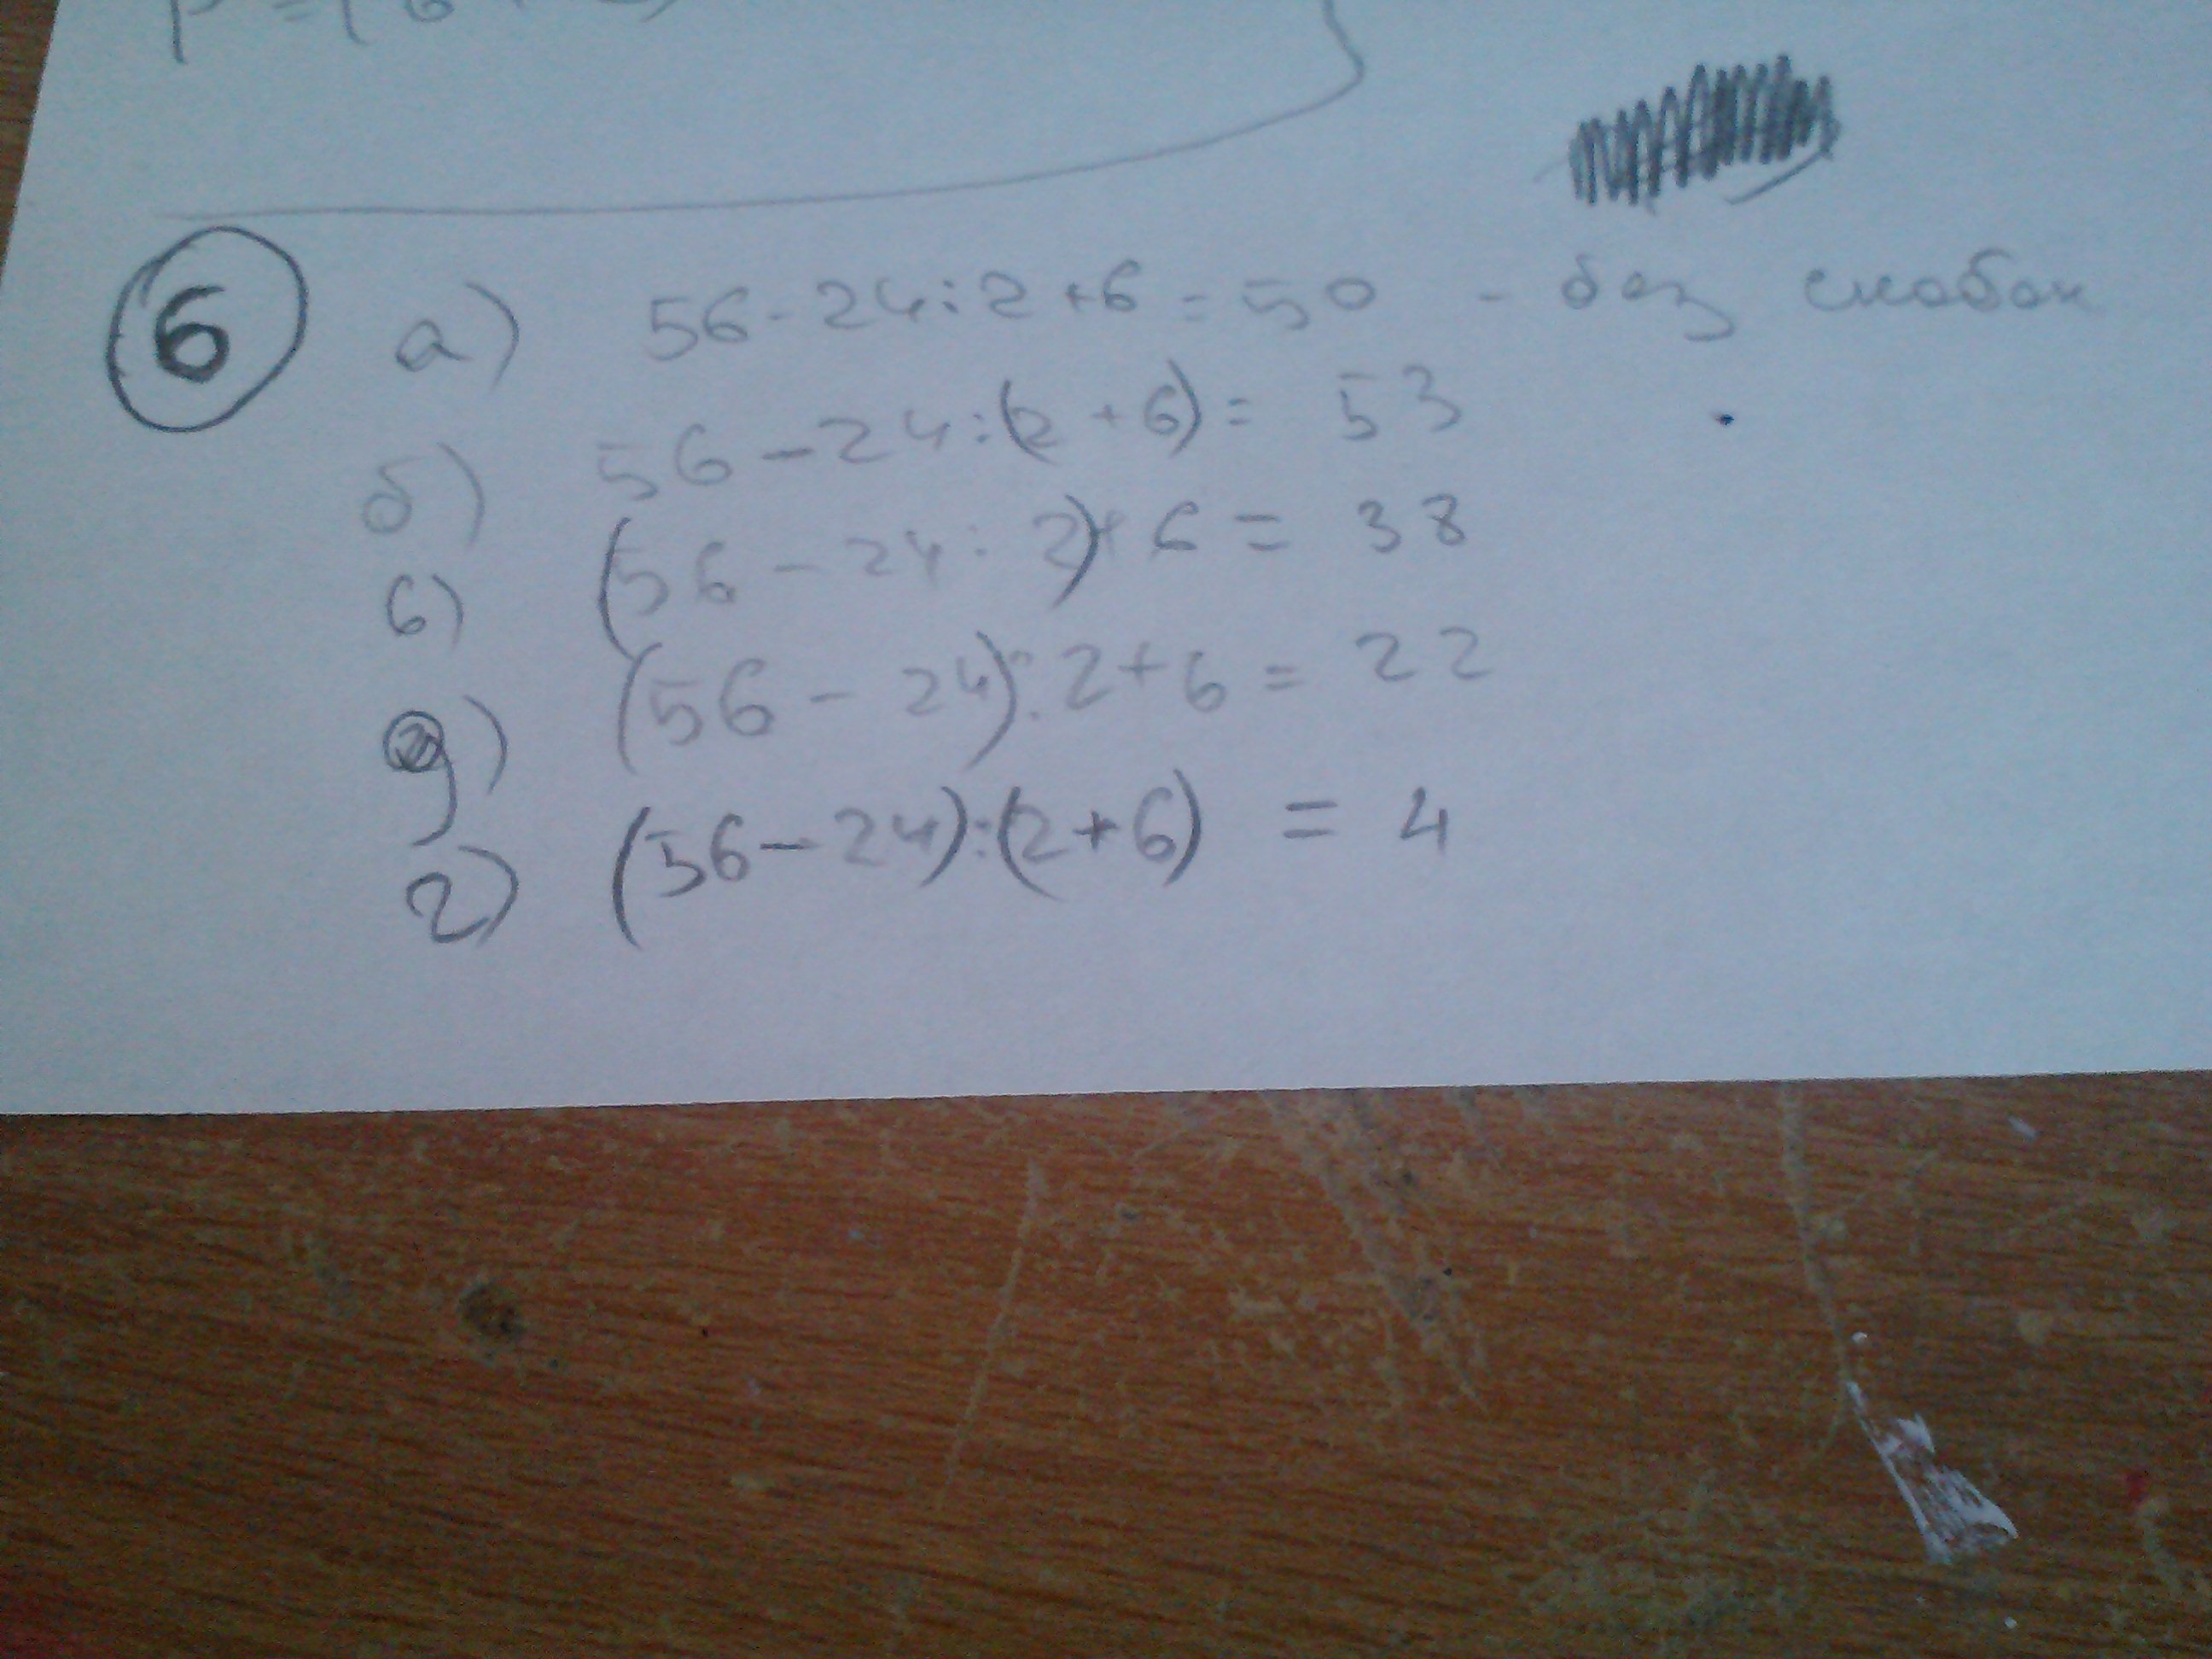 6 а) 56-24:2+6=50 - без скобок
б) 56-24:(2+6)=53
в) (56-24:2)+6=38
д) (56-24):2+6=22
г) (56-24):(2+6)=4